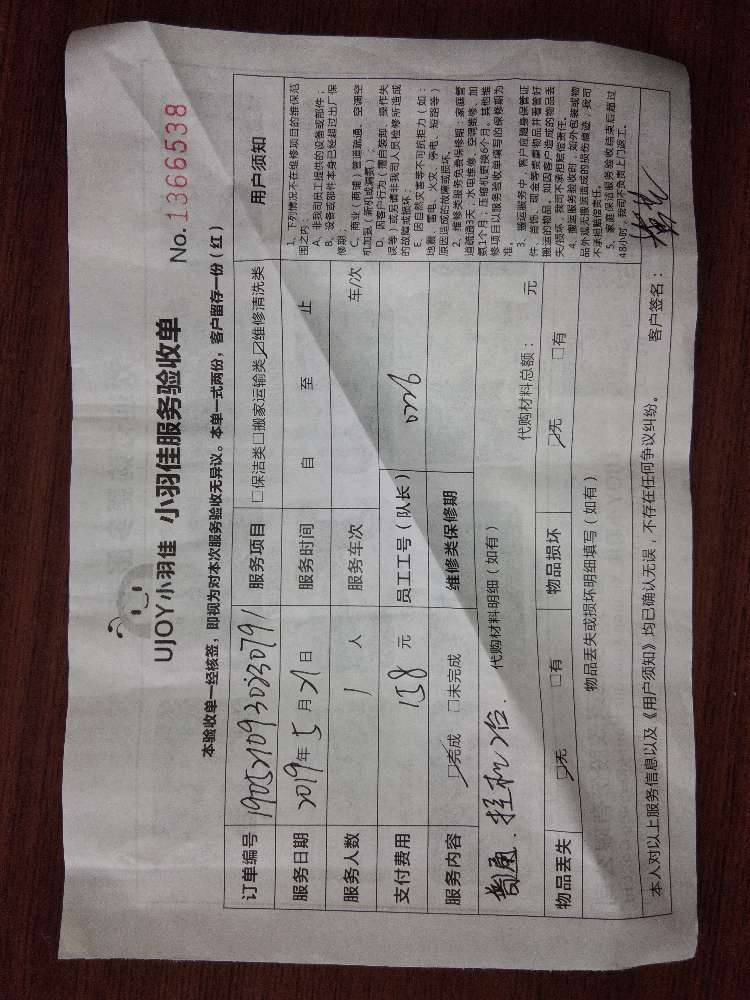 UJOY小羽佳 小羽佳服务验收单
No.1366538
本验收单一经核签，即视为对本次服务验收无异议。本单一式两份，客户留存一份（红）
订单编号 1905210930230791 服务项目 □保洁类□搬家运输类☑维修清洗类
服务日期 2019年5月21日 服务时间 自 至 止
服务人数 1 人 服务车次 车/次
支付费用 158 元 员工工号（队长） 0726
服务内容 ☑完成 □未完成 维修类保修期
代购材料明细（如有） 代购材料总额： 元
挂机2台.
物品丢失 ☑无 □有 物品损坏 ☑无 □有
物品丢失或损坏明细填写（如有）
用户须知
1、下列情况不在维修项目的维保范
围之内：
A、非我司员工提供的设备或部件；
B、设备或部件本身已经超过出厂保
修期；
C、商业（商铺）管道疏通、空调空
机加氨（新机或漏氨）；
D、因客户行为（擅自装卸、操作失
误等）或另请非我司人员检修所造成
的故障或损坏；
E、因自然灾害等不可抗拒力（如：
地震、雷电、火灾、停电、短路等）
原因造成的故障或损坏。
2、维修类服务免费保修期：家庭管
道疏通3天；水电维修、空调维修、加
氨1个月；压缩机更换6个月。其他维
修项目以服务验收单填写的保修期为
准。
3、搬运服务中，客户应随身保管证
件、首饰、现金等贵重物品并看管好
搬运的物品，如因客户造成的物品丢
失/损坏，我司不承担赔偿责任。
4、搬运服务验收时，如外包装或物
品外观无搬运造成的损伤痕迹，我司
不承担赔偿责任。
5、家庭保洁服务验收结束后超过
48小时，我司不负责上门返工。
本人对以上服务信息以及《用户须知》均已确认无误，不存在任何争议纠纷。 客户签名：